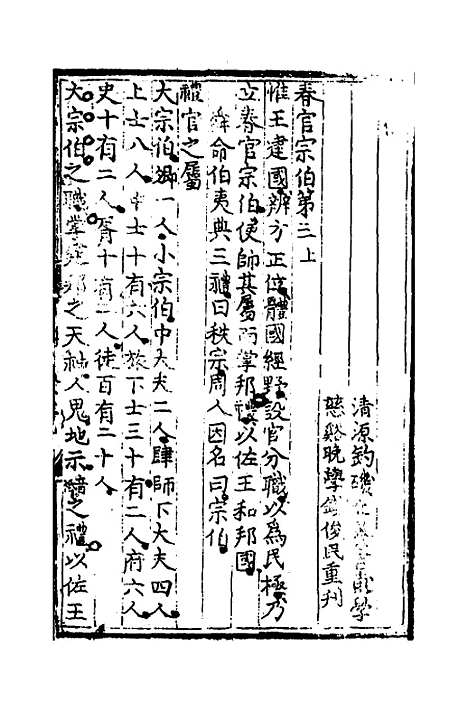 春官宗伯第三上
清源釣磯
慈谿晚學俊民重刋
惟王建國辨方正位體國經野設官分職以為民極乃
立春官宗伯使帥其屬而掌邦禮以佐王和邦國
舜命伯夷典三禮曰秩宗周人因名曰宗伯
禮官之屬
大宗伯卿一人小宗伯中大夫二人肆師下大夫四人
上士八人中士十有六人旅下士三十有二人府六人
史十有二人胥十有二人徒百有二十人
大宗伯之職掌建邦之天神人鬼地示之禮以佐王